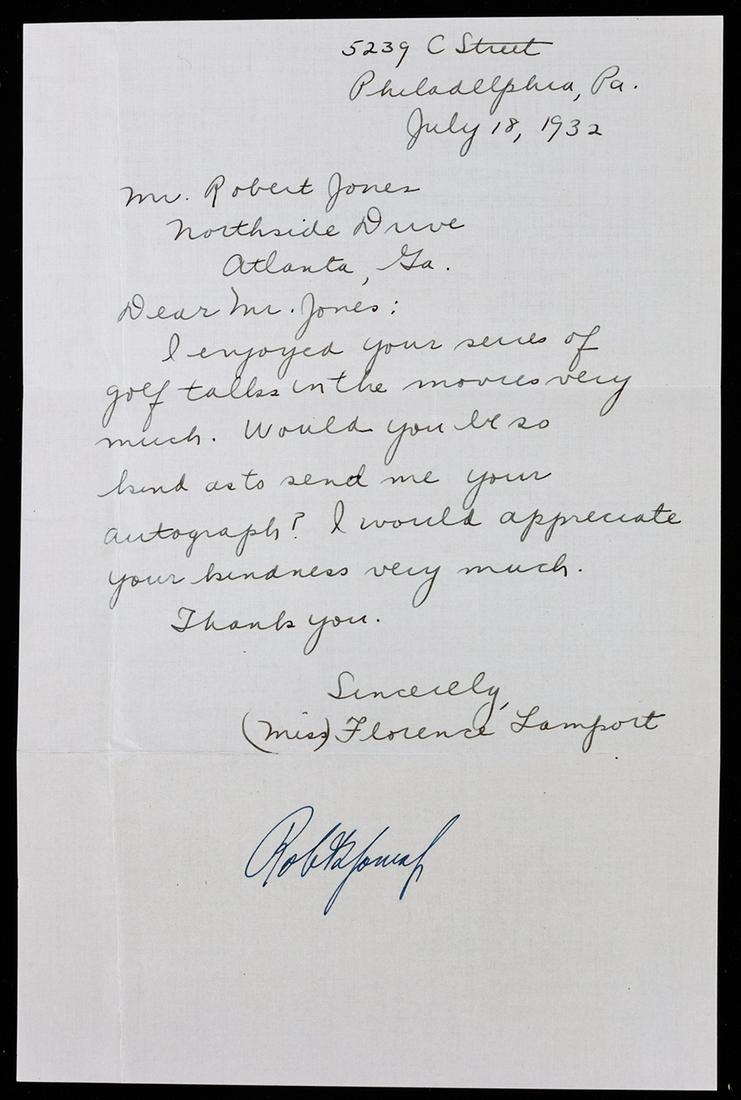 5239 C Street
Philadelphia, Pa.
July 18, 1932
Mr. Robert Jones
Northside Drive
Atlanta, Ga.
Dear Mr. Jones:
I enjoyed your series of
golf talks in the movies very
much. Would you be so
kind as to send me your
autograph? I would appreciate
your kindness very much.
Thank you.
Sincerely,
(Miss) Florence Lamport
Robt T Jones Jr